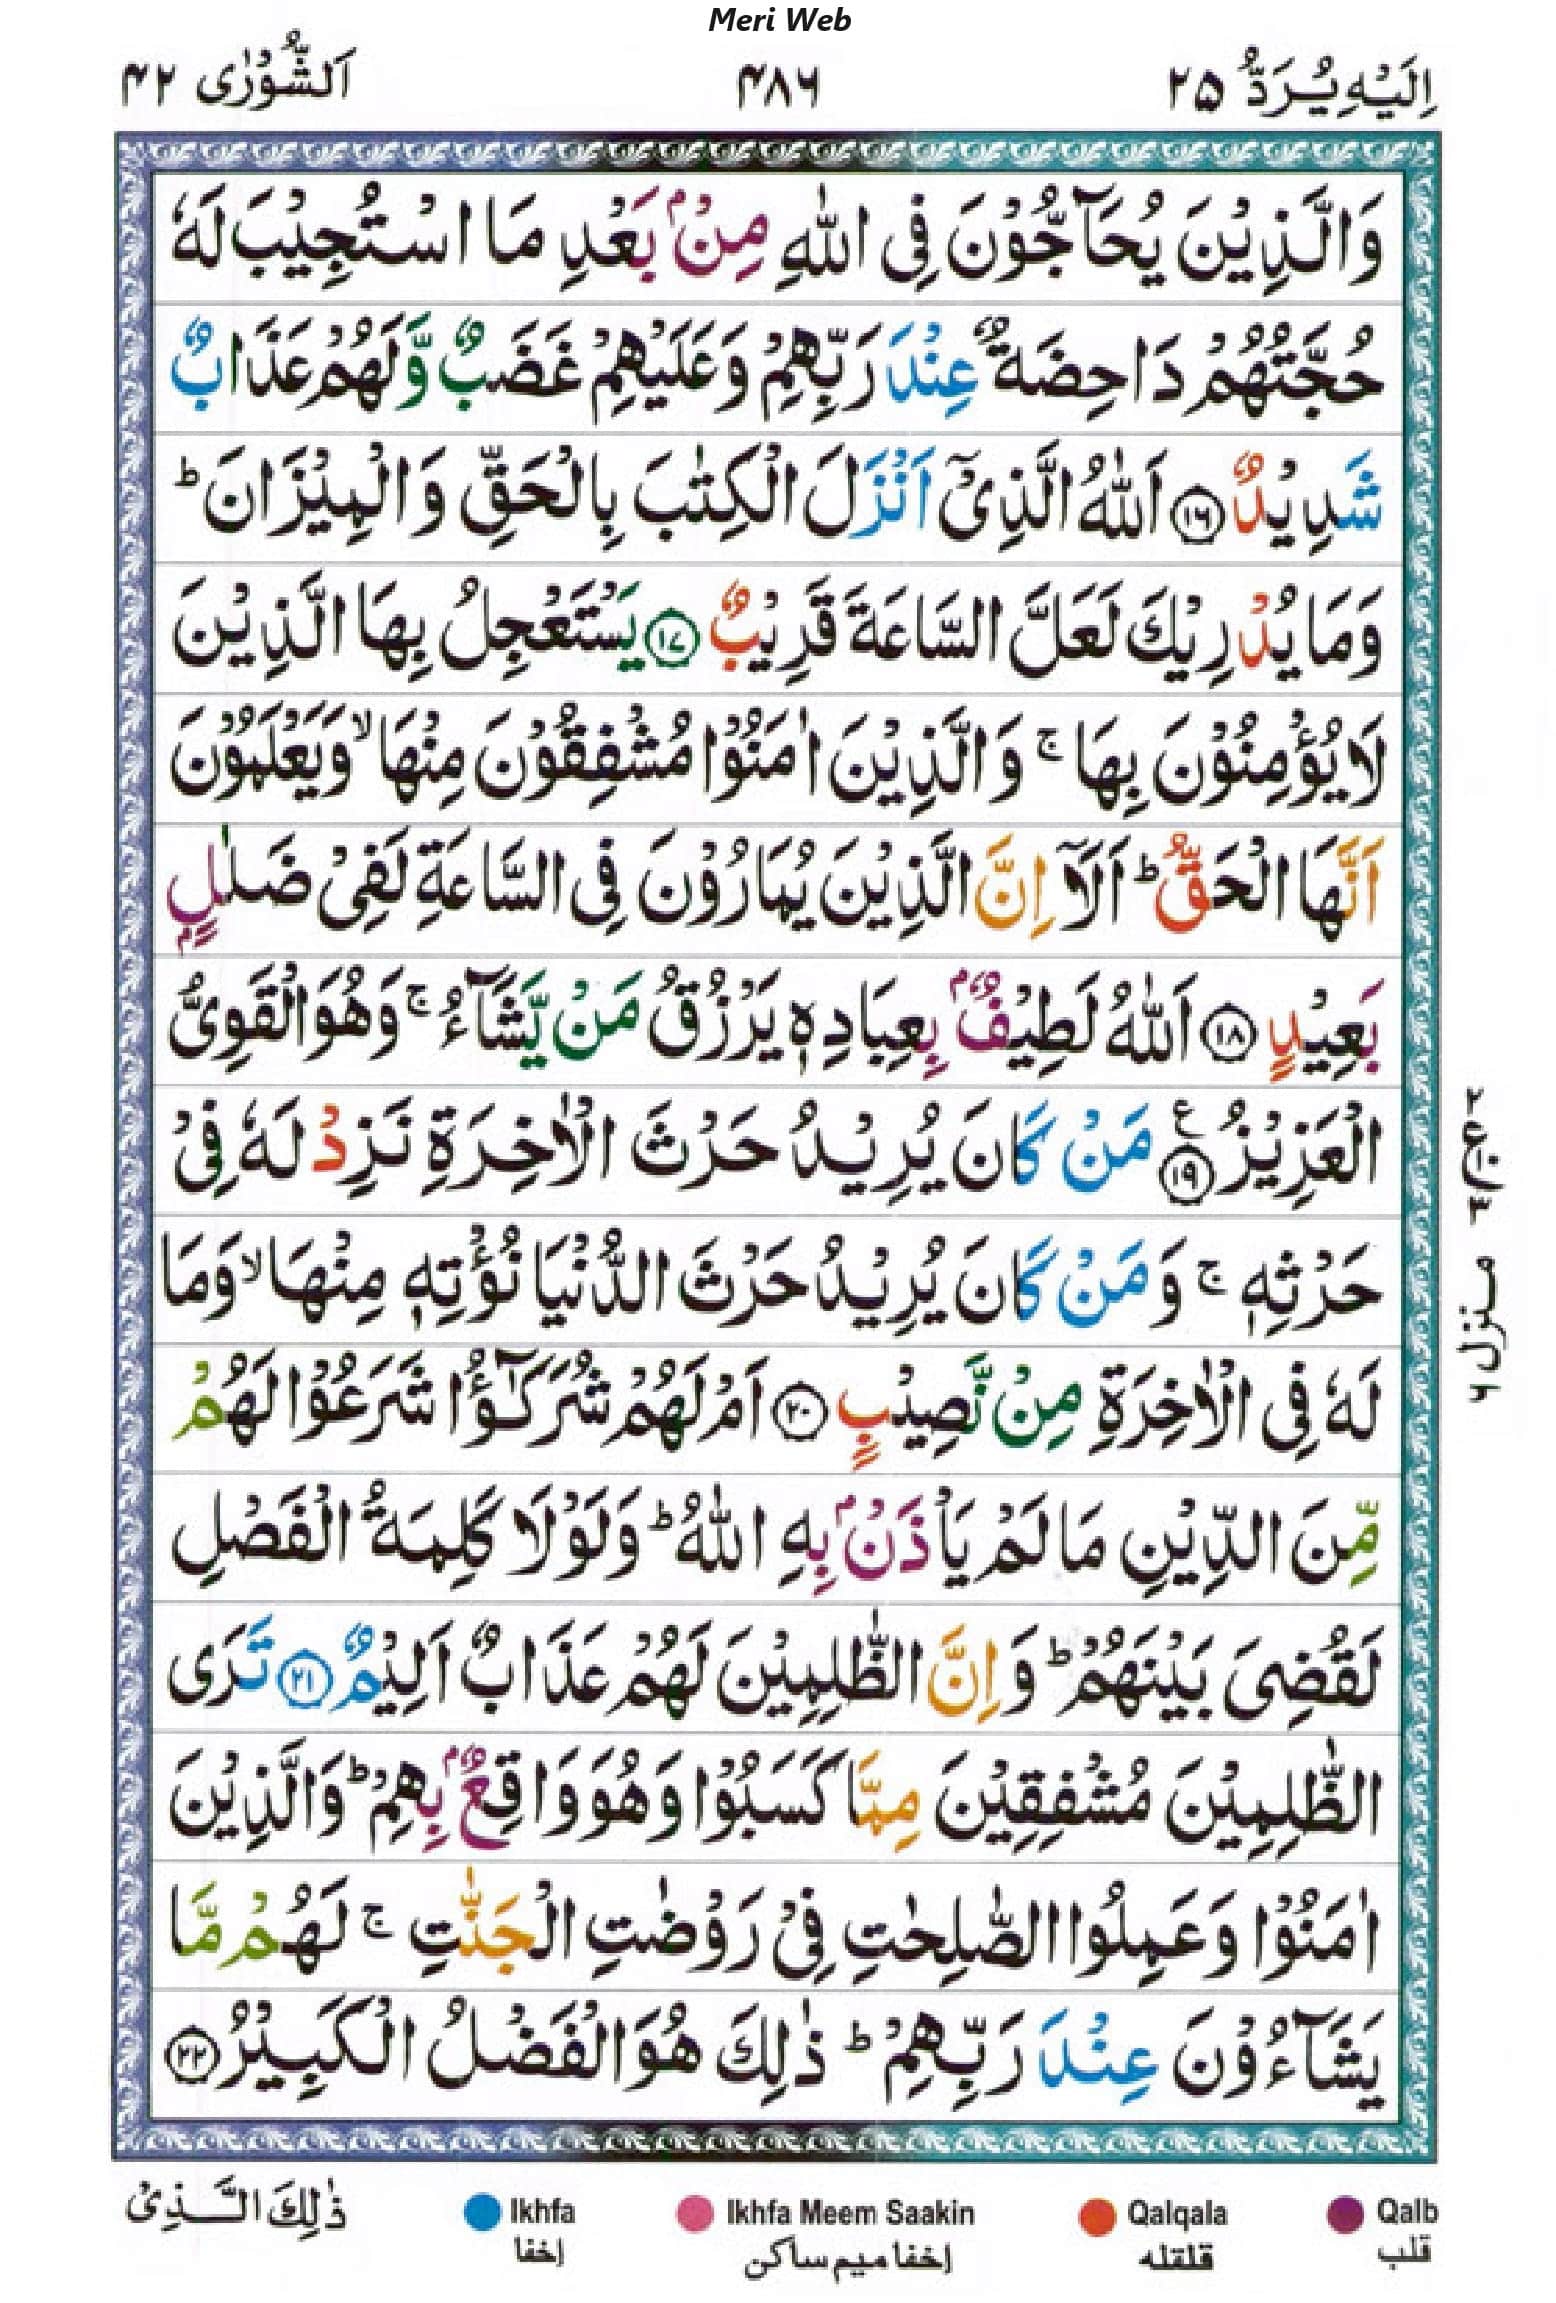 Meri Web
اِلَيْهِ يُرَدُّ ٢٥
٤٨٦
اَلشُّوْرٰى ٤٢
وَالَّذِيْنَ يُحَآجُّوْنَ فِى اللّٰهِ مِنْۢ بَعْدِ مَا اسْتُجِيْبَ لَهٗ
حُجَّتُهُمْ دَاحِضَةٌ عِنْدَ رَبِّهِمْ وَعَلَيْهِمْ غَضَبٌ وَّلَهُمْ عَذَابٌ
شَدِيْدٌ ﴿١٦﴾ اَللّٰهُ الَّذِىْۤ اَنْزَلَ الْكِتٰبَ بِالْحَقِّ وَالْمِيْزَانَ ؕ
وَمَا يُدْرِيْكَ لَعَلَّ السَّاعَةَ قَرِيْبٌ ﴿١٧﴾ يَسْتَعْجِلُ بِهَا الَّذِيْنَ
لَا يُؤْمِنُوْنَ بِهَا ۚ وَالَّذِيْنَ اٰمَنُوْا مُشْفِقُوْنَ مِنْهَا ۙ وَيَعْلَمُوْنَ
اَنَّهَا الْحَقُّ ؕ اَلَاۤ اِنَّ الَّذِيْنَ يُمَارُوْنَ فِى السَّاعَةِ لَفِىْ ضَلٰلٍۢ
بَعِيْدٍ ﴿١٨﴾ اَللّٰهُ لَطِيْفٌۢ بِعِبَادِهٖ يَرْزُقُ مَنْ يَّشَآءُ ۚ وَهُوَ الْقَوِىُّ
الْعَزِيْزُ ﴿١٩﴾ ع مَنْ كَانَ يُرِيْدُ حَرْثَ الْاٰخِرَةِ نَزِدْ لَهٗ فِىْ
حَرْثِهٖ ۚ وَمَنْ كَانَ يُرِيْدُ حَرْثَ الدُّنْيَا نُؤْتِهٖ مِنْهَا ۙ وَمَا
لَهٗ فِى الْاٰخِرَةِ مِنْ نَّصِيْبٍ ﴿٢٠﴾ اَمْ لَهُمْ شُرَكٰٓؤُا شَرَعُوْا لَهُمْ
مِّنَ الدِّيْنِ مَا لَمْ يَاْذَنْۢ بِهِ اللّٰهُ ؕ وَلَوْلَا كَلِمَةُ الْفَصْلِ
لَقُضِىَ بَيْنَهُمْ ؕ وَاِنَّ الظّٰلِمِيْنَ لَهُمْ عَذَابٌ اَلِيْمٌ ﴿٢١﴾ تَرَى
الظّٰلِمِيْنَ مُشْفِقِيْنَ مِمَّا كَسَبُوْا وَهُوَ وَاقِعٌۢ بِهِمْ ؕ وَالَّذِيْنَ
اٰمَنُوْا وَعَمِلُوا الصّٰلِحٰتِ فِىْ رَوْضٰتِ الْجَنّٰتِ ۚ لَهُمْ مَّا
يَشَآءُوْنَ عِنْدَ رَبِّهِمْ ؕ ذٰلِكَ هُوَ الْفَضْلُ الْكَبِيْرُ ﴿٢٢﴾
٢ ع ٣
منزل ٦
ذٰلِكَ الَّذِىْ
Ikhfa
إخفا
Ikhfa Meem Saakin
إخفا ميم ساكن
Qalqala
قلقله
Qalb
قلب